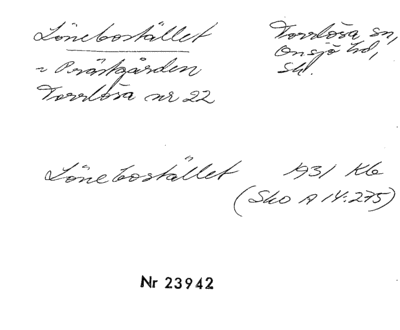 Lönebostället
= Prästgården
Torrlösa nr 22
Torrlösa sn,
Onsjö hd,
Sk.
Lönebostället 1931 Kb
(Sko A 14:275)
Nr 23942